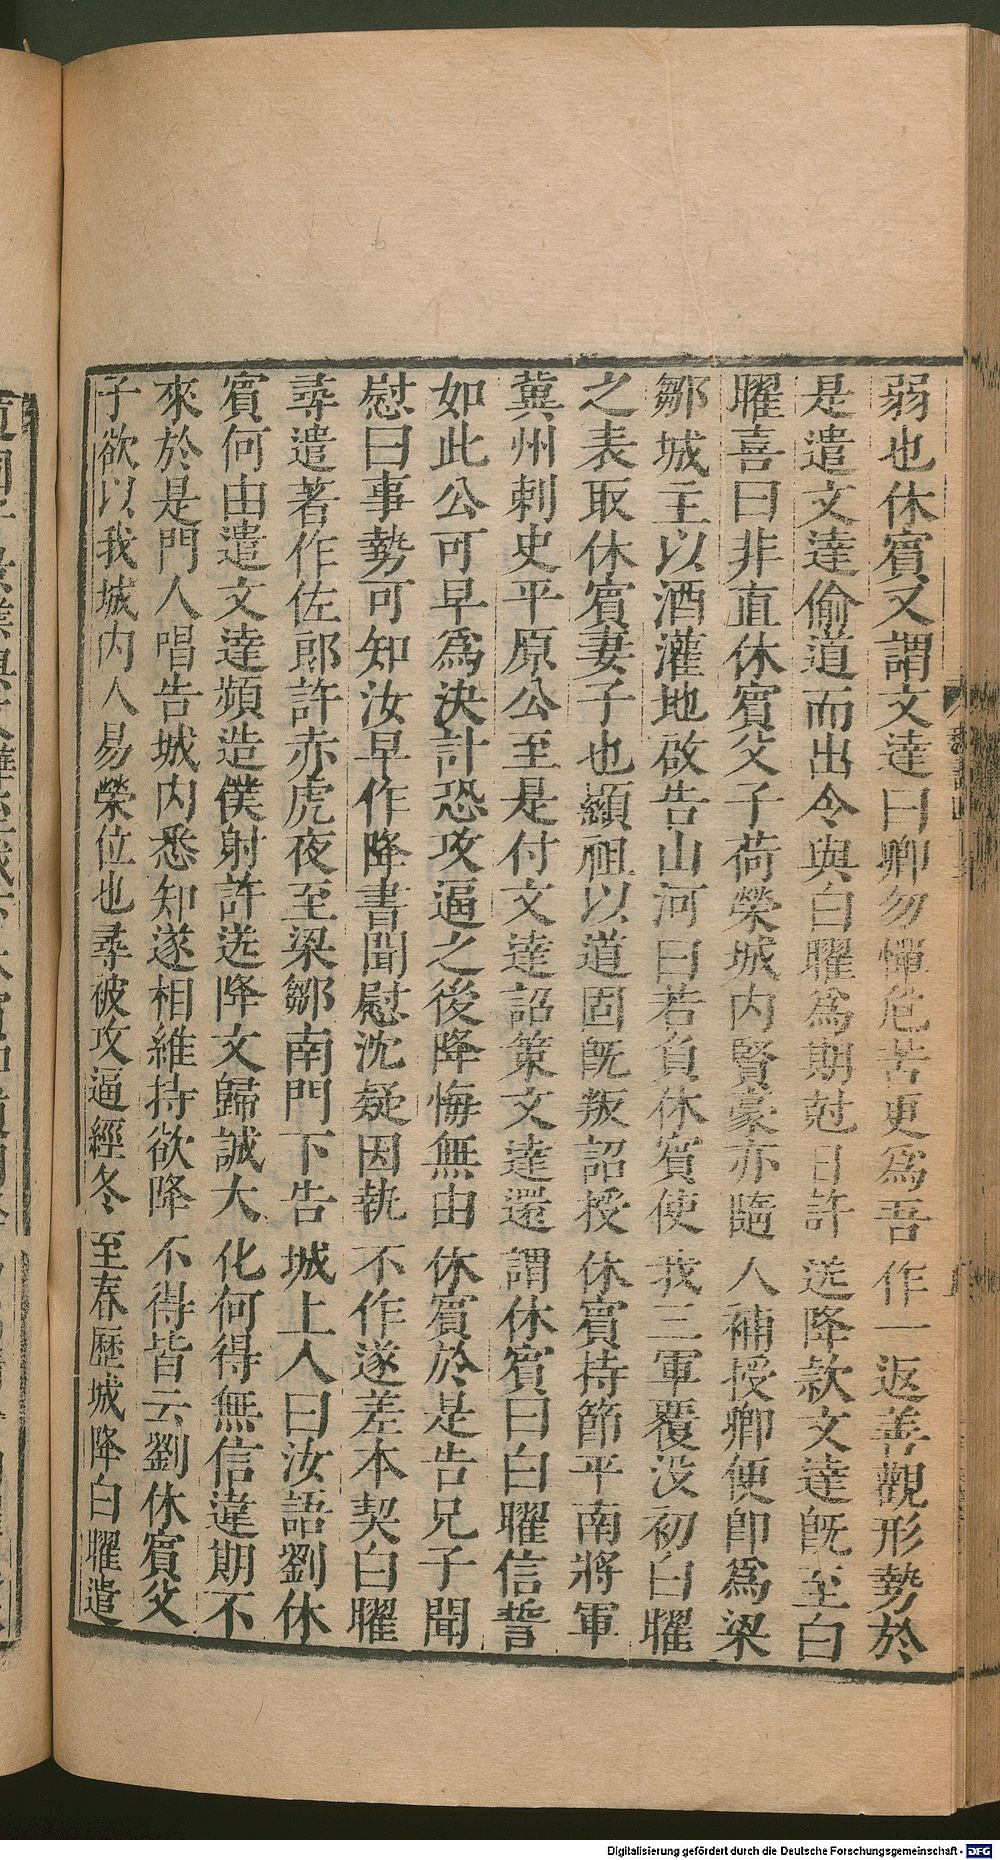 弱也休賓又謂文達曰卿勿憚危苦更爲吾作一返善觀形勢於
是遣文達偷道而出令與白曜爲期尅日許送降款文達既至白
曜喜曰非直休賓父子荷榮城内賢豪亦隨人補授卿便即爲梁
鄒城主以酒灌地啟告山河曰若負休賓使我三軍覆没初白曜
之表取休賓妻子也顯祖以道固既叛詔授休賓持節平南將軍
冀州刺史平原公至是付文達詔策文達還謂休賓曰白曜信誓
如此公可早爲決計恐攻逼之後降悔無由休賓於是告兄子聞
慰曰事勢可知汝早作降書聞慰沈疑因執不作遂差本契白曜
尋遣著作佐郎許赤虎夜至梁鄒南門下告城上人曰汝語劉休
賓何由遣文達頻造僕射許送降文歸誠大化何得無信違期不
來於是門人唱告城内悉知遂相維持欲降不得皆云劉休賓父
子欲以我城内人易榮位也尋被攻逼經冬至春歷城降白曜遣
Digitalisierung gefördert durch die Deutsche Forschungsgemeinschaft - DFG